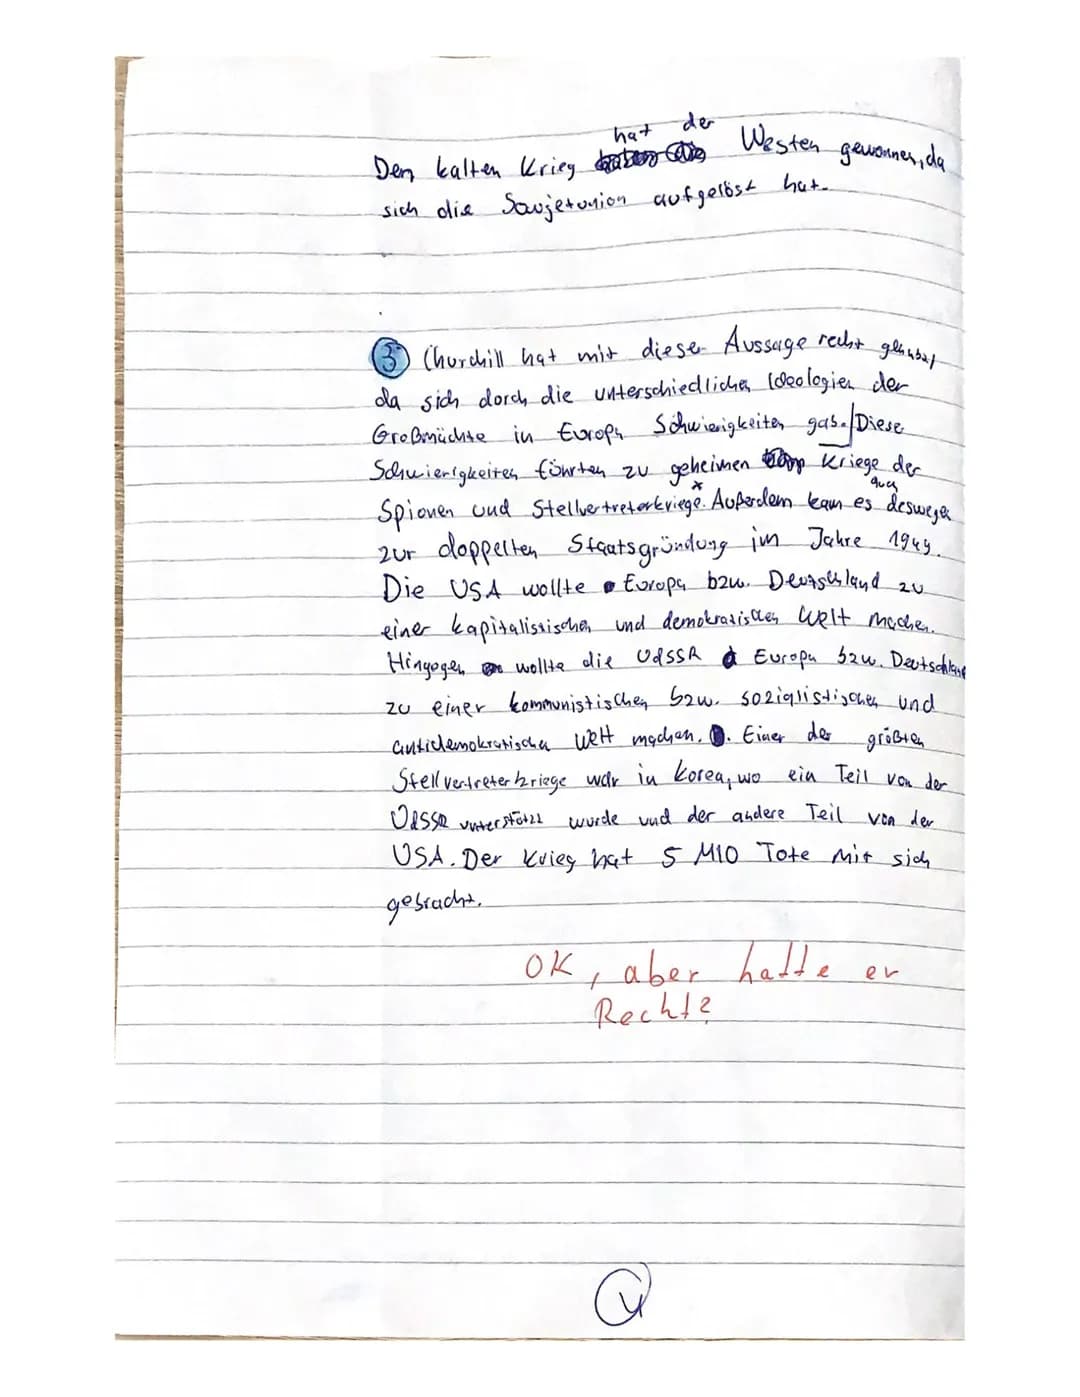 hat der
Den kalten Krieg Westen gewonnen, da
sich die Sowjetunion aufgelöst hat.
3 Churchill hat mit dieser Aussage recht gehabt,
da sich dorch die unterschiedlichen Ideologien der
Großmächte in Europa Schwierigkeiten gab. Diese
Schwierigkeiten führten zu geheimen Kriege der
auch
Spionen und Stellvertreterkriege. Außerdem kam es deswegen
zur doppelten Staatsgründung im Jahre 1949.
Die USA wollte Europa bzw. Deutschland zu
einer kapitalistischen und demokratischen Welt machen.
Hingegen wollte die UdSSR Europa bzw. Deutschland
zu einer kommunistischen bzw. sozialistischen und
antidemokratischen Welt machen. Einer der größten
Stellvertreterkriege war in Korea, wo ein Teil von der
UdSSR unterstützt wurde und der andere Teil von der
USA. Der Krieg hat 5 MIO Tote mit sich
gebracht.
OK, aber hatte er
Recht?
4